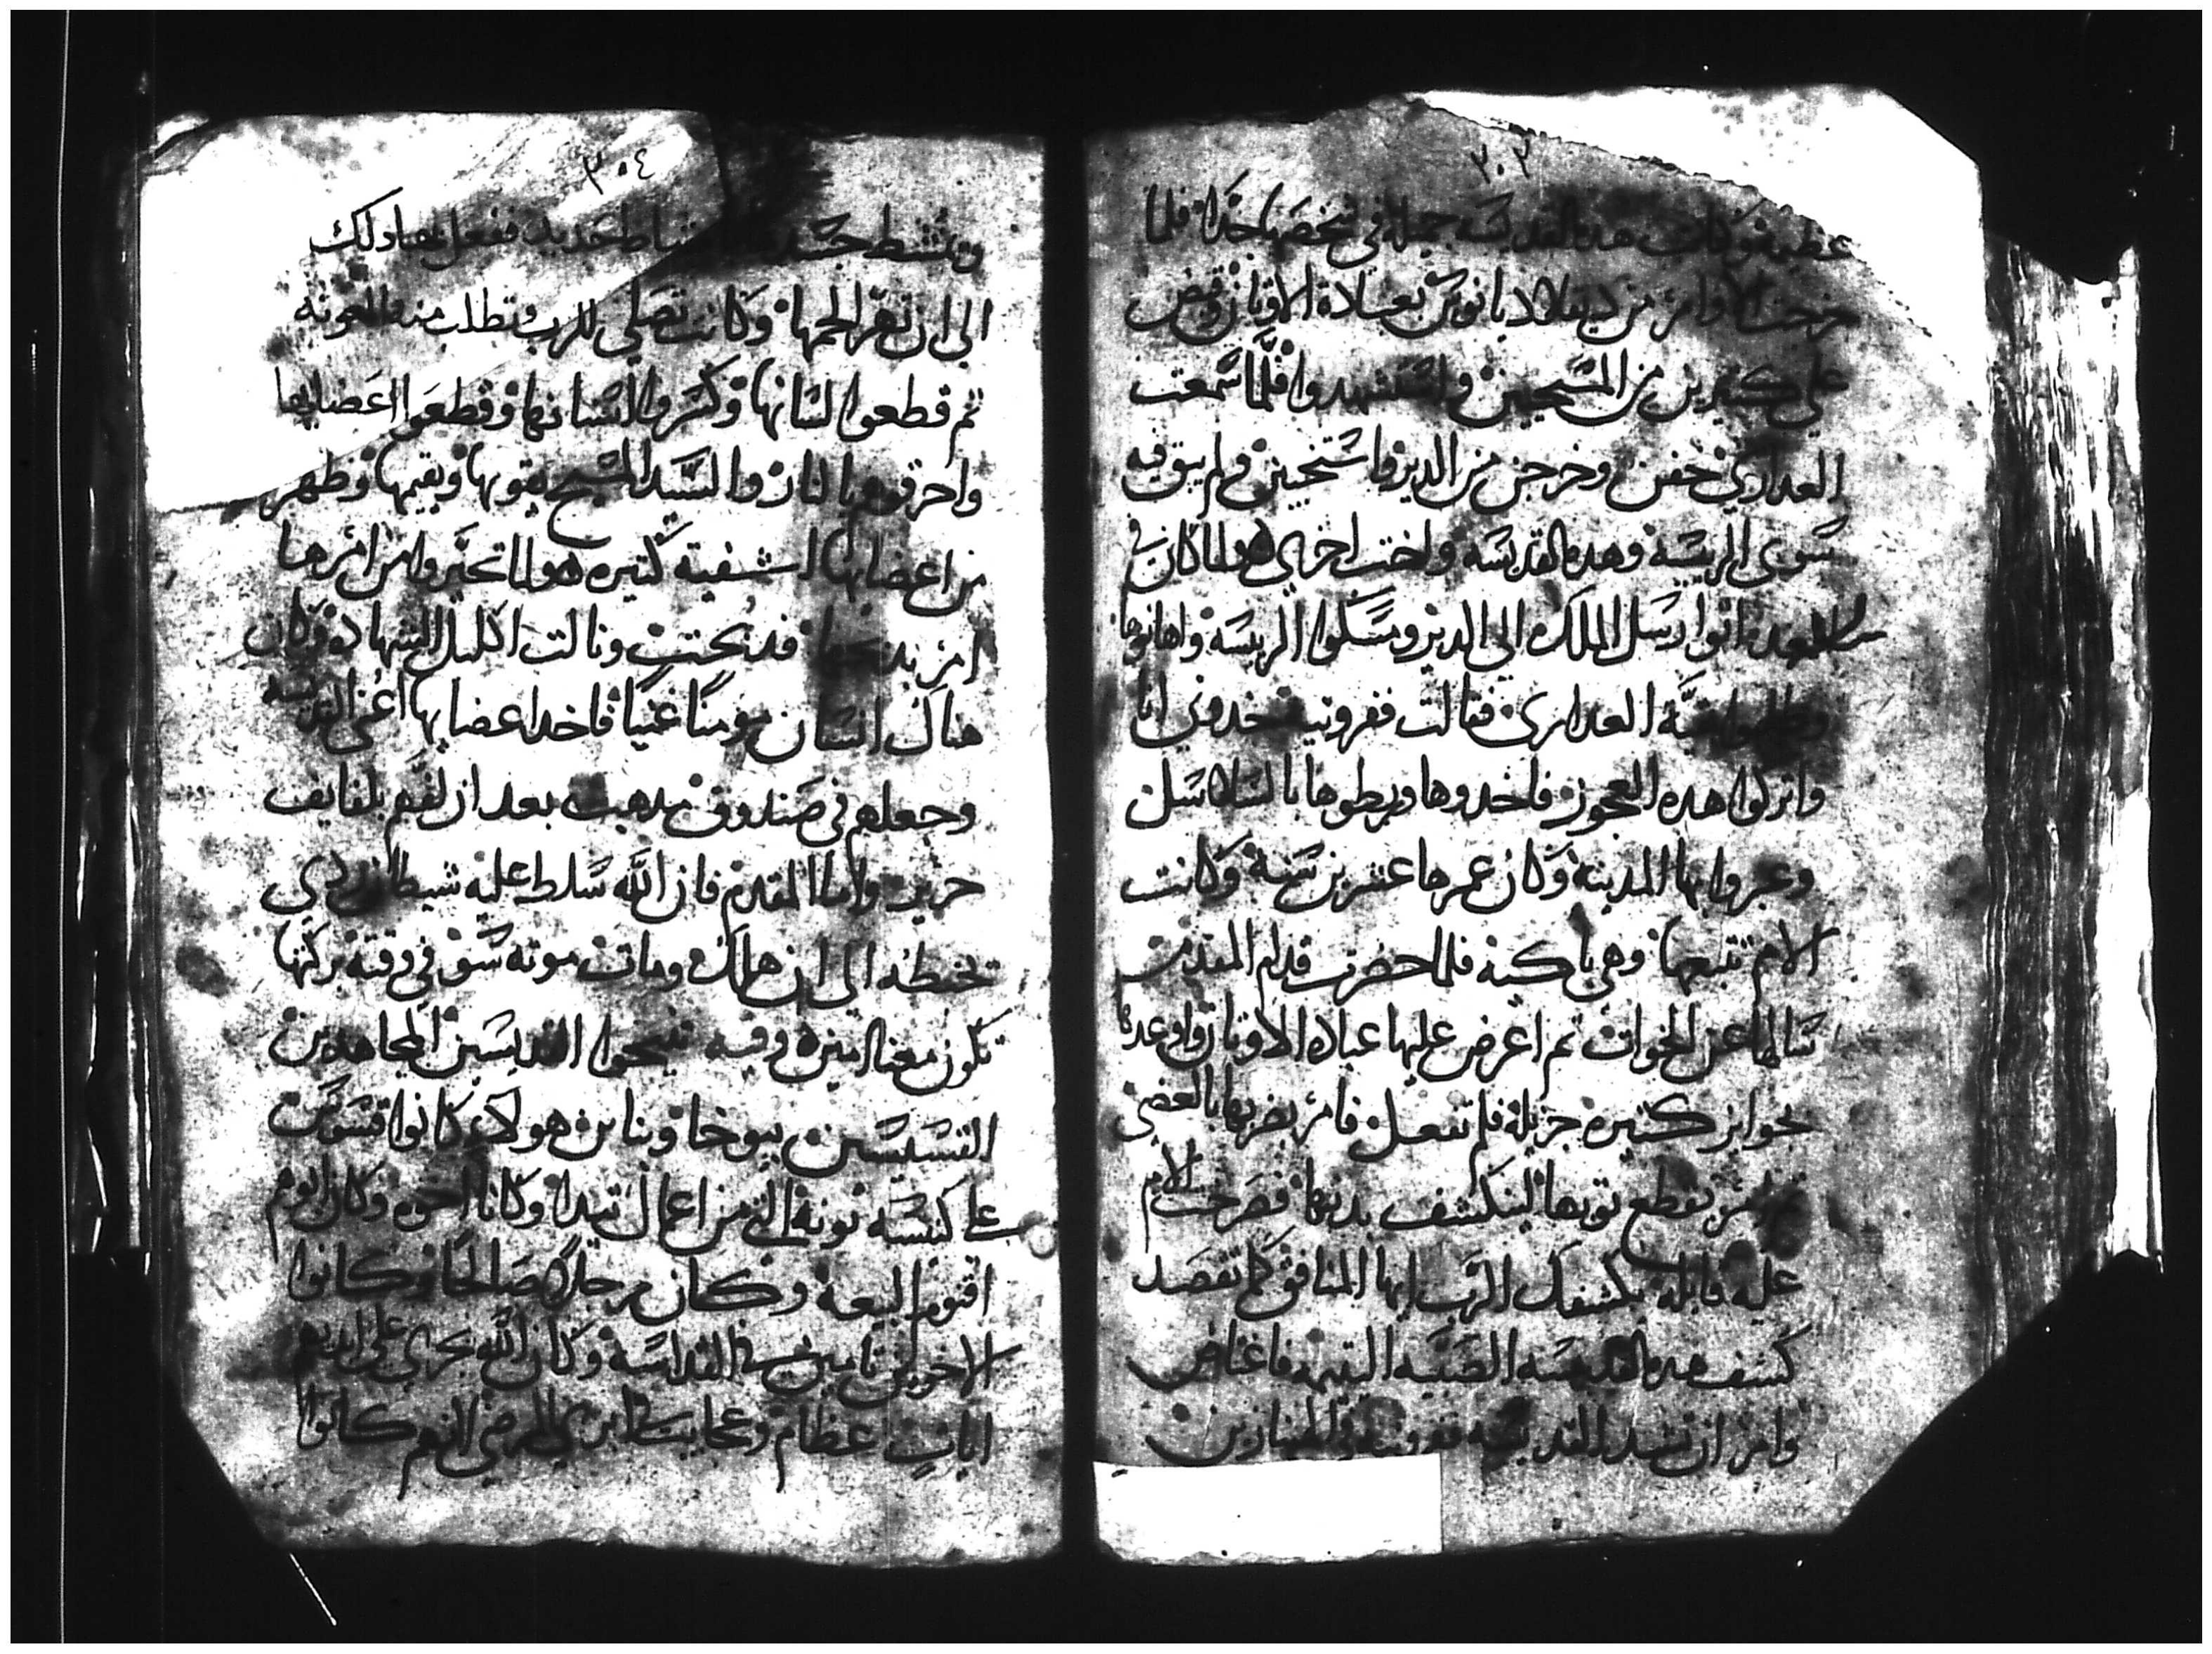 ٣٠٣
عظيمه وكانت هده القديسه جميلة في شخصها جدا فلما
خرجت الاوامر من ديقلاديانوس بعبادة الاوتان وقبض
على كتيرين من المسيحيين واستشهدوا فلما سمعت
العداري خفن وخرجن من الدير واستخبين ولم يبق فيه
سوى الريسة وهده القديسه واخت اخرى هولما كان في
الغد اتوا رسل الملك الى الدير ومسكوا الريسة واهانوها
وطلبوا بقية العداري فقالت ففرونيه خدوني انا
واتركوا هده العجوز فاخدوها وربطوها بالسلاسل
وعبروا بها المدينة وكان عمرها عشرين سنة وكانت
الام تتبعها وهي باكية فلما حضرت قدام المقدم
سالها عن الخوات تم اعرض عليها عباده الاوتان واوعدها
بجوايز كتيره جزيلة فلم تفعل فامر بضربها بالعصي
تم امر بقطع توبها لينكشف بدنها فصرخت الام
عليه قايلة يكشفك الرب ايها المنافق كما تقصد
كشف هده القديسه الصبيه اليتيمه فاغتاض
وامر ان تشد القديسه ففرونيه في الهنبازين
٣٠٤
وتمشط جسدها بامشاط حديد ففعل بها دلك
الى ان تهرا لحمها وكانت تصلي للرب وتطلب منه المعونه
تم قطعوا لسانها وكسروا اسنانها وقطعوا اعضايها
واحرقوهم بالنار والسيد المسيح يقويها ويقيمها وظهر
من اعضايها اشفية كتيره هولما تحير وا من امرها
امر بدبحها فدبحت ونالت اكليل الشهادة وكان
هناك انسان مومنا غنيا فاخد اعضايها اعني القديسه
وجعلهم في صندوق مدهب بعد ان لفهم بلفايف
حرير واما المقدم فان الله سلط عليه شيطان ردي
تخبطه الى ان هلك ومات موتة سو في وقته بركتها
تكون معنا امين وفيه تنيحوا القديسين المجاهدين
القسيسين بيوخا وبنايين هولاي كانوا قسوس
على كنيسه تونة التي من اعمال تندا وكانا اخوه وكان ابوهم
اقنوم البيعه وكان رجلا صالحا وكانوا
الاخوين تابتين في القداسة وكان الله يجري على ايديهم
ايات عظام وعجايب في ابري المرضي انهم كانوا